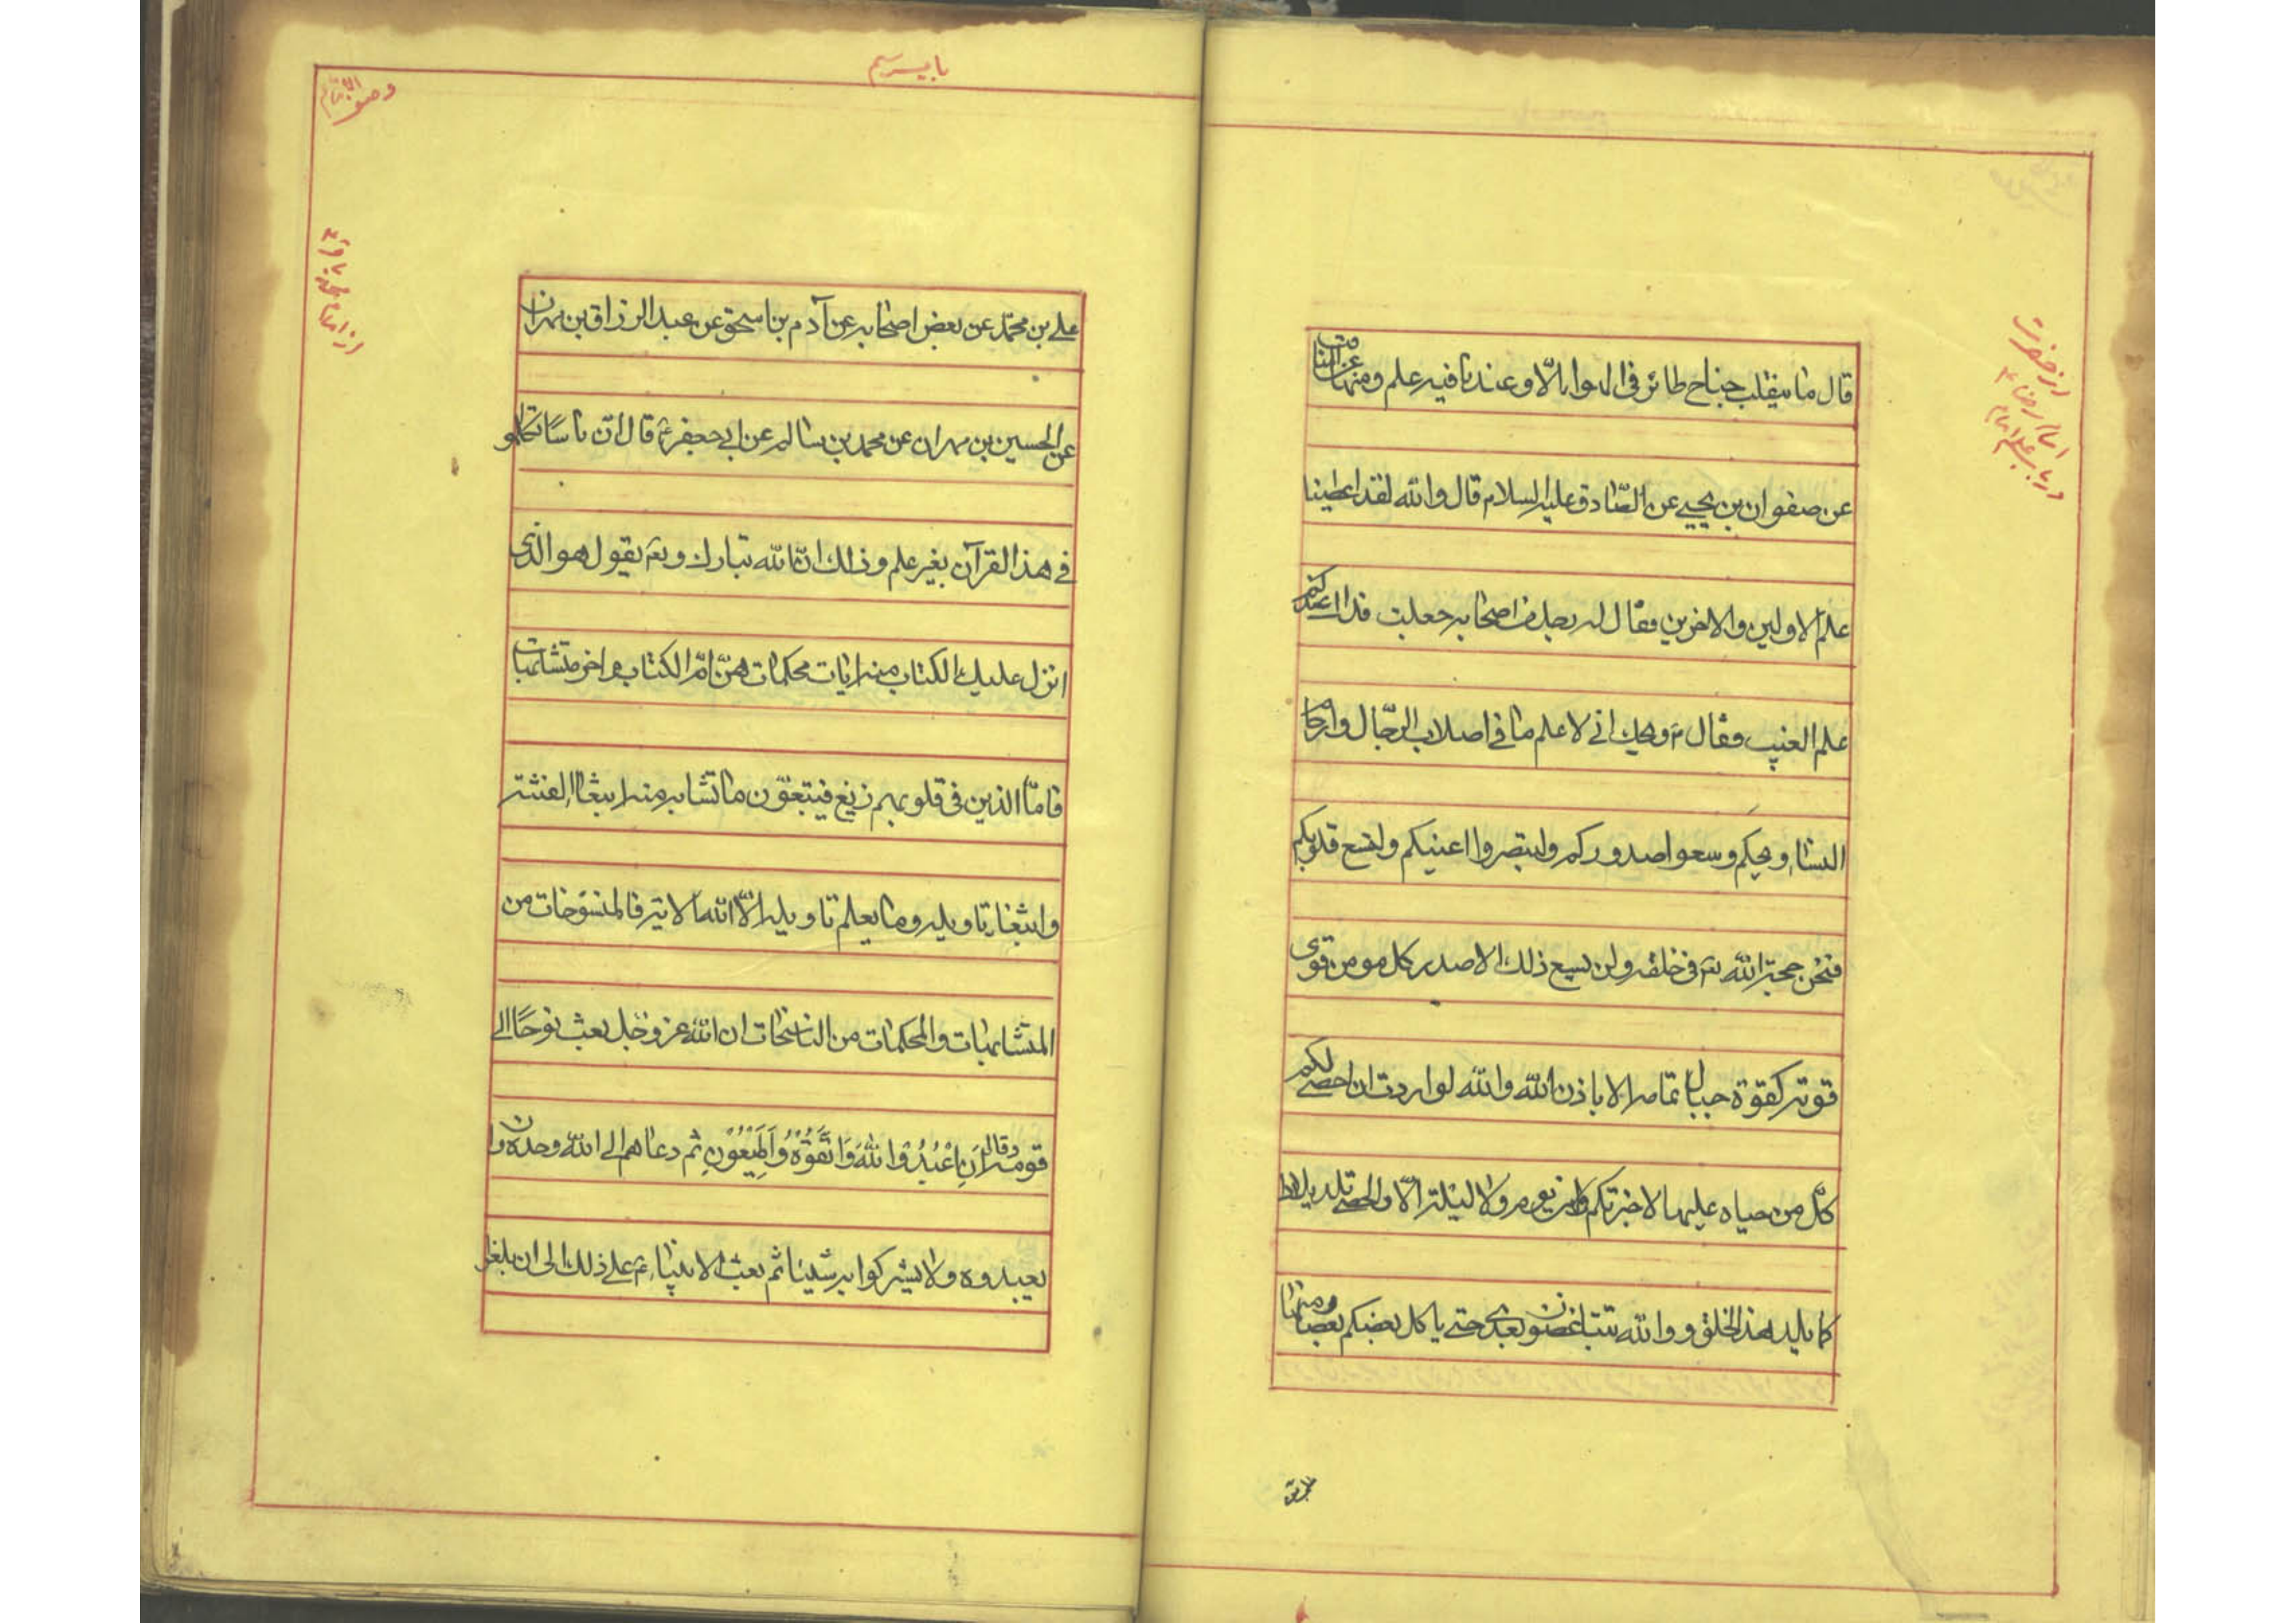 قال ما ينقلب جناح طائر فى الهواء الّا وعندنا فيه علم ومنها
عن صفوان بن يحيى عن الصّادق عليه السلام قال والله لقد اعطينا
علم الاولين والاخرين فقال له رجل من اصحابه جعلت فداك عندكم
علم الغيب فقال ع ويحك انى لاعلم ما فى اصلاب الرّجال وارحام
النساء ويحكم وسعوا صدوركم ولتبصروا اعينكم ولتسع قلوبكم
فنحن حجة الله تع فى خلقه ولن يسع ذلك الا صدر كل مومن قوى
قوته كقوة جبال تمامه الا باذن الله والله لو اردت ان احصى لكم
كلّ من حياه عليها لاخبرتكم وما من يوم ولا ليلة الّا والحصى تلد
كما يلد هذ الخلق و والله تتباغضون بعدى حتى ياكل بعضكم بعضا ومنها
بابيسم
وصف الامام
على بن محمّد عن بعض اصحابه عن آدم بن اسحق عن عبد الرزاق بن مهران
عن الحسين بن مهران عن محمد بن سالم عن ابى جعفر ع قال انّ ناسًا تكلمو
فى هذ القرآن بغير علم وذلك انّ الله تبارك وتع يقول هو الّذى
انزل عليك الكتاب منه ايات محكمات هنّ امّ الكتاب واخر متشابهات
فامّا الذين فى قلوبهم زيغ فيتبعون ما تشابه منه ابتغاء الفتنة
وابتغاء تاويله وما يعلم تاويله الّا الله الاية فالمنسوخات من
المتشابهات والمحكمات من الناسخات ان الله عز وجل بعث نوحًا الى
قومه وقال اَنِ اعْبُدُوا اللهَ وَاتَّقُوْهُ وَاَطِيْعُوْنِ ثم دعاهم الى الله وحده وان
يعبدوه ولا يشركوا به شيئا ثم بعث الانبياء ع على ذلك الى ان بلغو